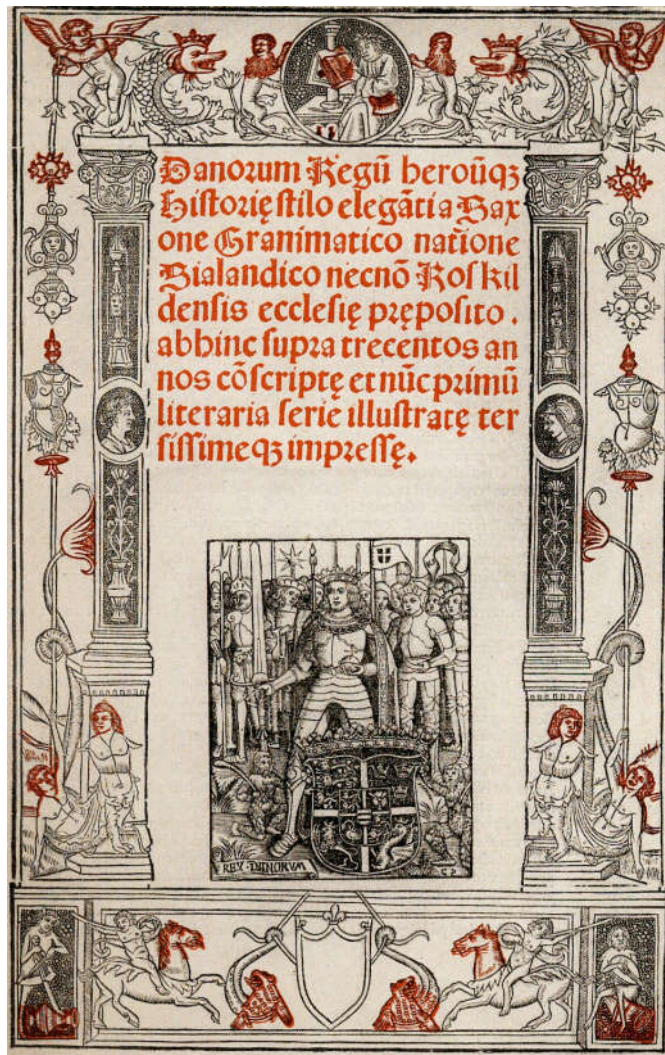 Danorum Regū heroūqꝫ
Historię stilo elegāti a Sax
one Grammatico natione
Sialandico necnō Roskil
densis ecclesię pręposito .
abhinc supra trecentos an
nos cōscriptę et nūc primū
literaria serie illustratę ter
sissimeqꝫ impressę.
REX · DANORVM